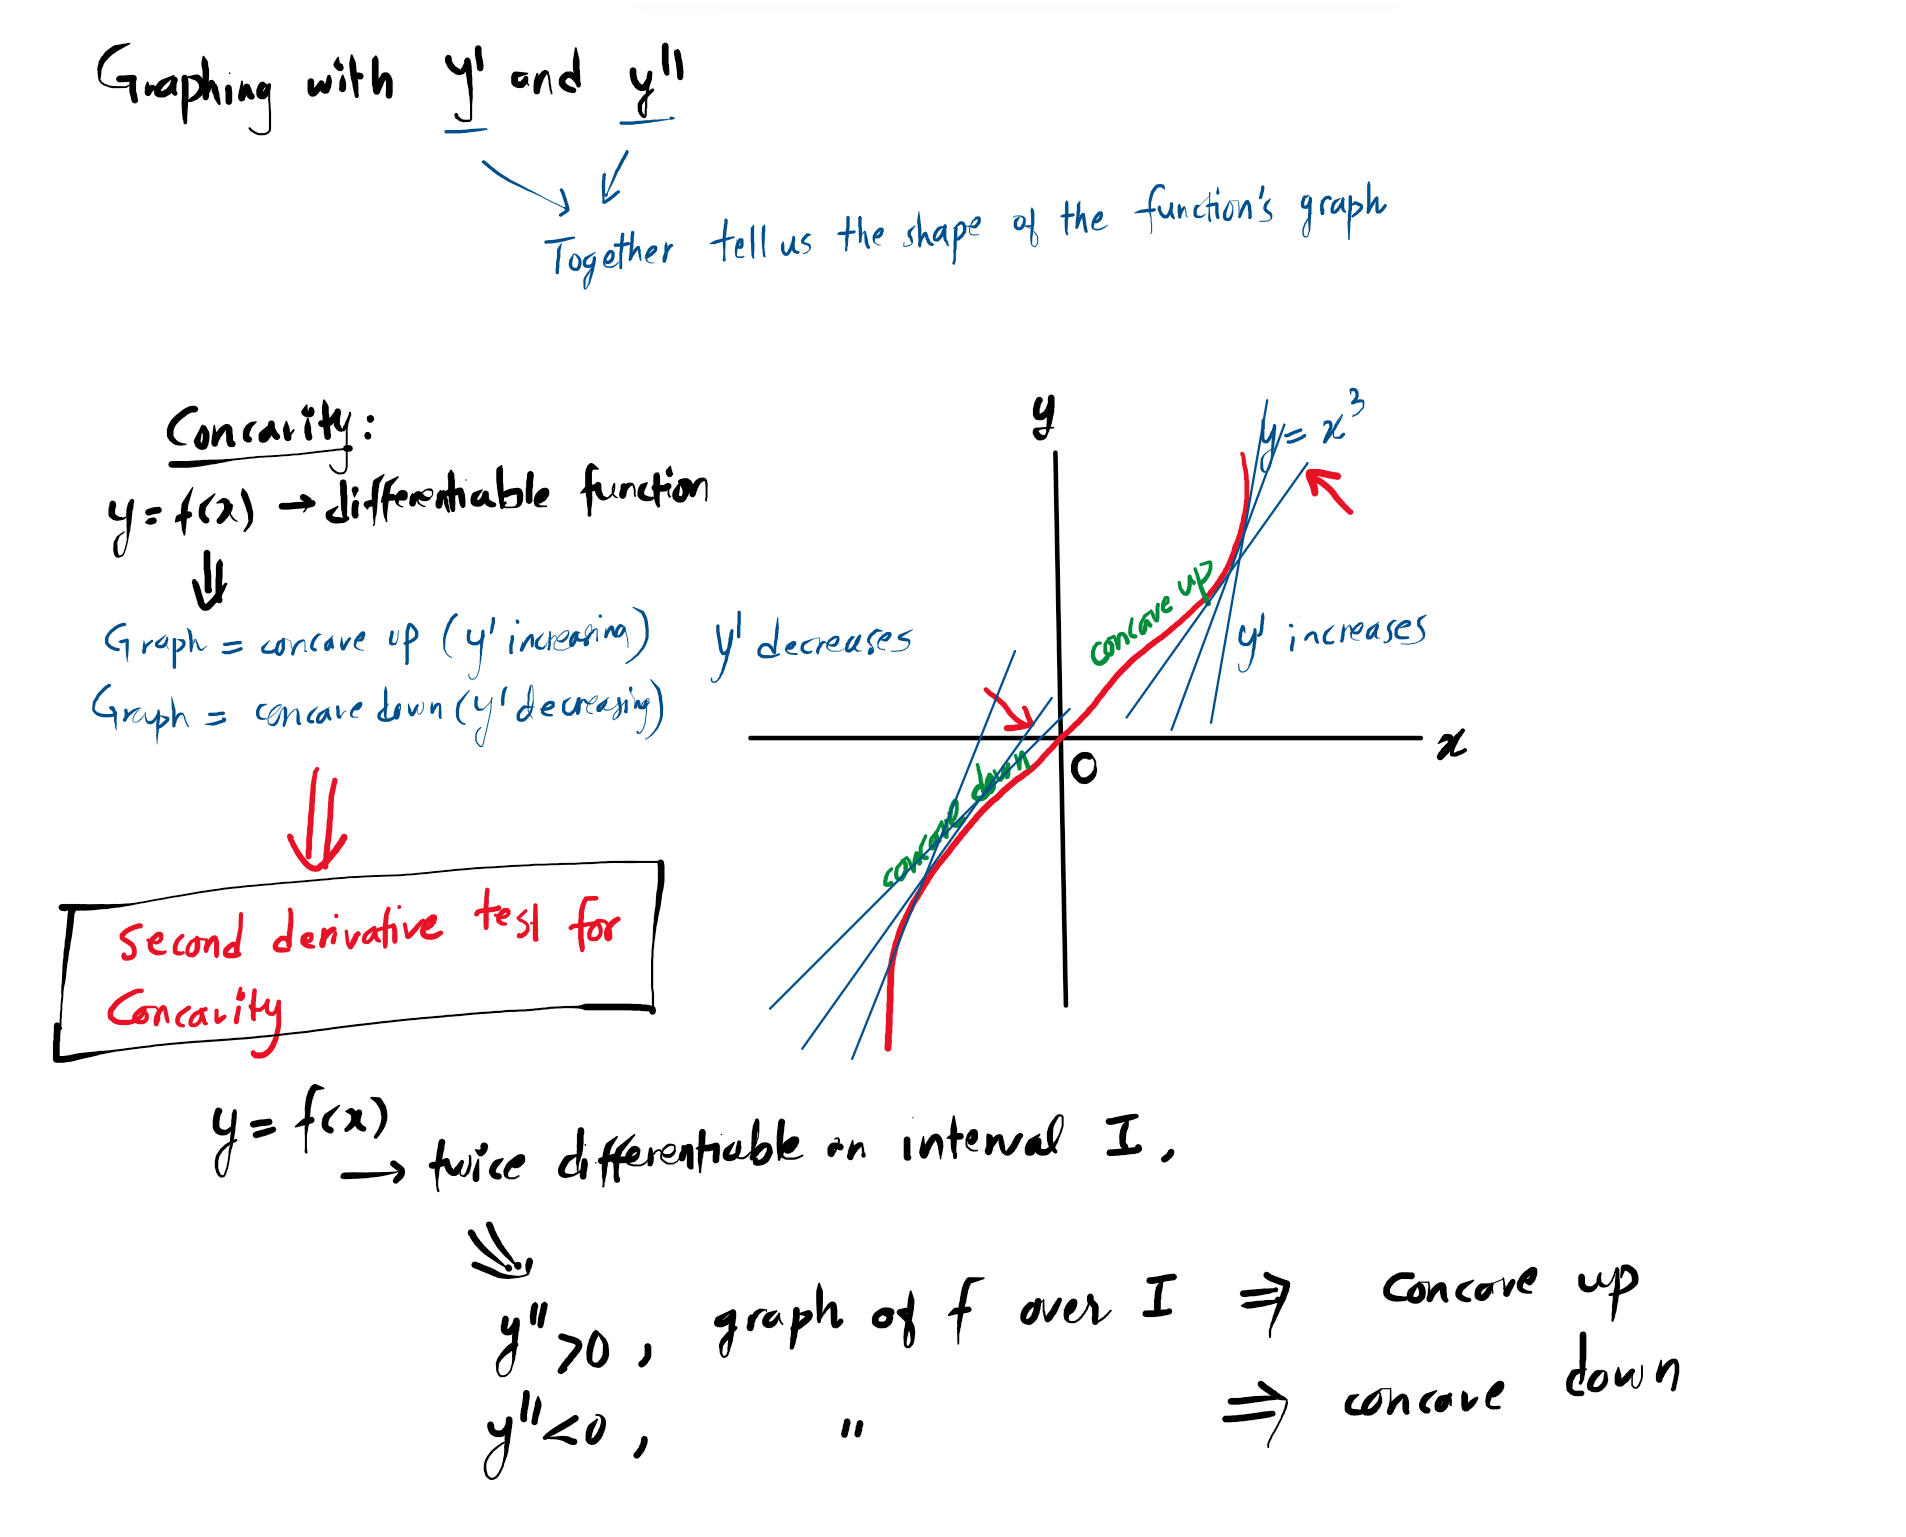 Graphing with y' and y"
Together tell us the shape of the function's graph
Concavity:
y = f(x) → differentiable function
⇓
Graph = concave up (y' increasing)
Graph = concave down (y' decreasing)
y
y = x³
concave up
y' increases
y' decreases
x
O
concave down
Second derivative test for
Concavity
y = f(x)
→ twice differentiable on interval I,
y" > 0, graph of f over I ⇒ concave up
y" < 0, " ⇒ concave down